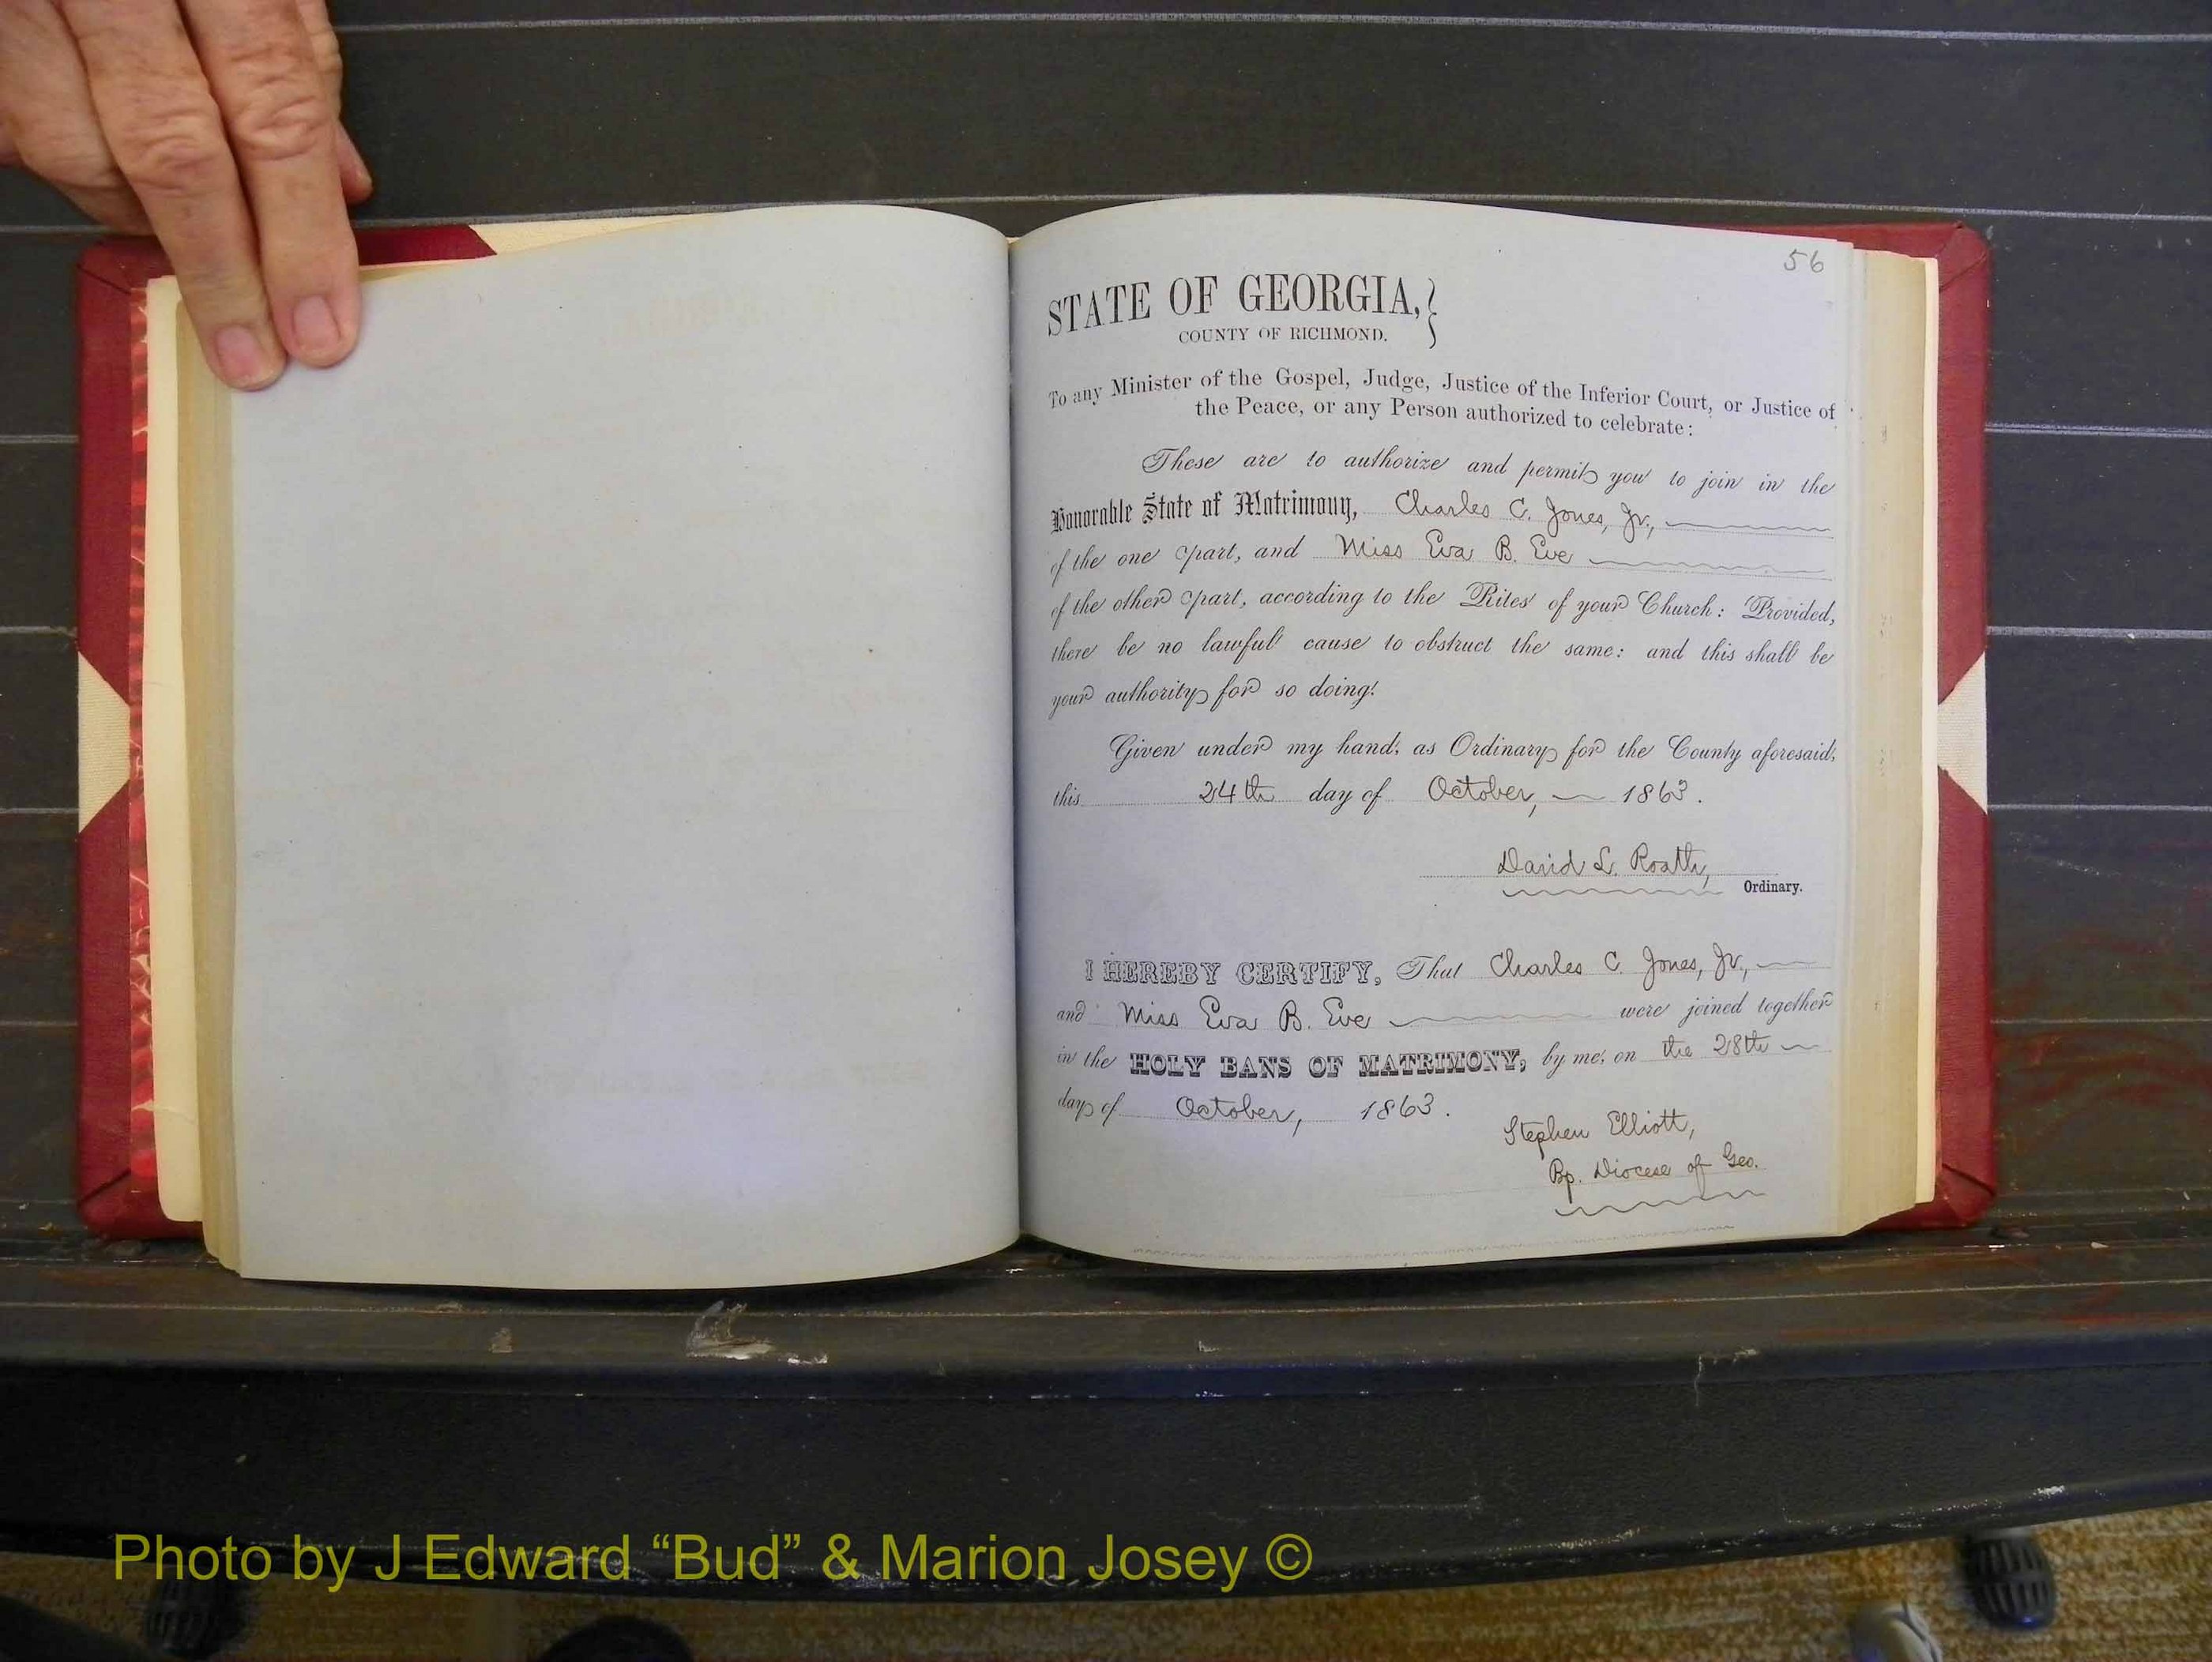 56
STATE OF GEORGIA,}
COUNTY OF RICHMOND.
To any Minister of the Gospel, Judge, Justice of the Inferior Court, or Justice of
the Peace, or any Person authorized to celebrate:
These are to authorize and permit you to join in the
Honorable State of Matrimony, Charles C. Jones, Jr.,
of the one part, and Miss Eva B. Eve
of the other part, according to the Rites of your Church: Provided,
there be no lawful cause to obstruct the same: and this shall be
your authority for so doing.
Given under my hand, as Ordinary for the County aforesaid,
this 24th day of October, 1863.
David L. Roath,
Ordinary.
I HEREBY CERTIFY, That Charles C. Jones, Jr.,
and Miss Eva B. Eve were joined together
in the HOLY BANS OF MATRIMONY, by me, on the 28th
day of October, 1863.
Stephen Elliott,
Bp. Diocese of Geo.
Photo by J Edward “Bud” & Marion Josey ©